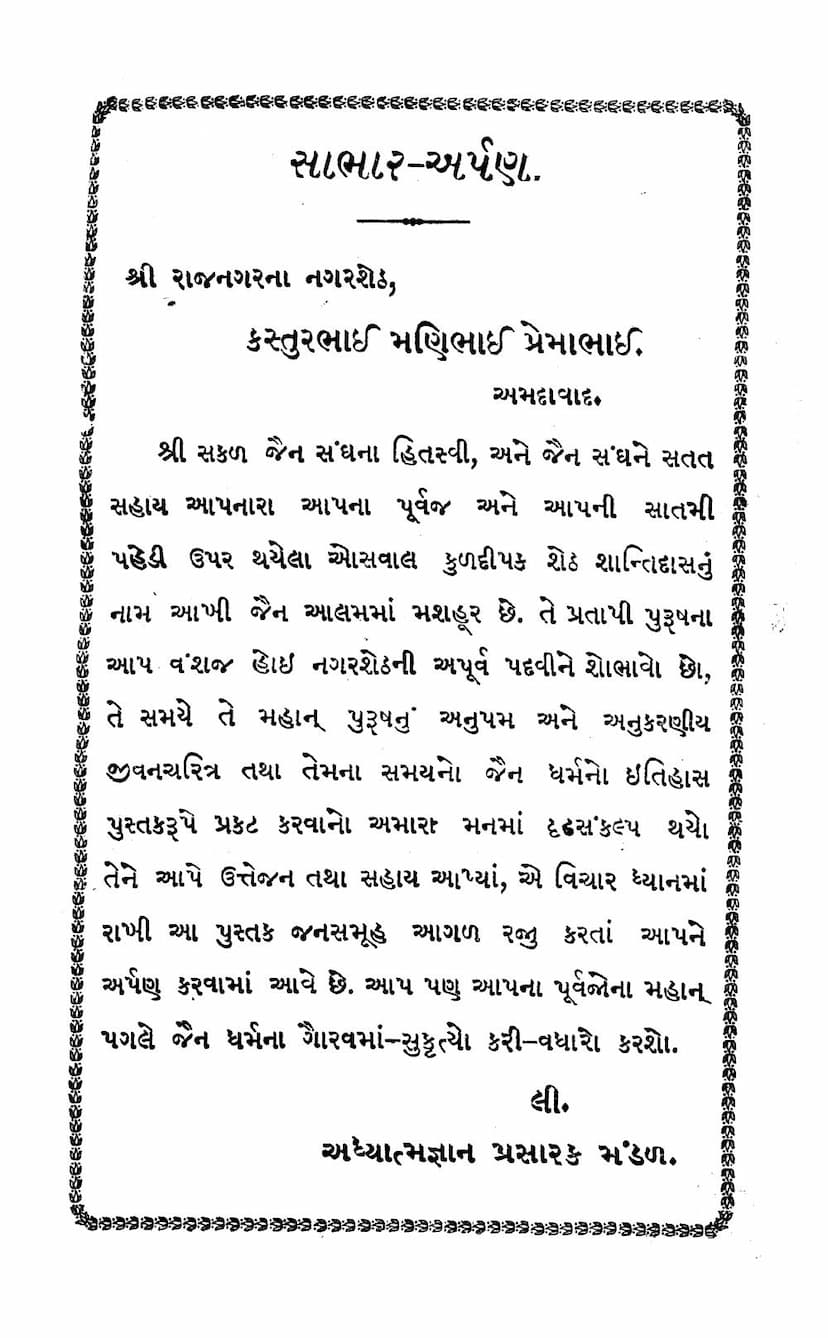 સાભાર-અર્પણ.
શ્રી રાજનગરના નગરશેઠ,
કસ્તુરભાઈ મણિભાઈ પ્રેમાભાઈ.
અમદાવાદ.
શ્રી સકળ જૈન સંઘના હિતસ્વી, અને જૈન સંઘને સતત
સહાય આપનારા આપના પૂર્વજ અને આપની સાતમી
પહેડી ઉપર થયેલા ઓસવાલ કુળદીપક શેઠ શાન્તિદાસનું
નામ આખી જૈન આલમમાં મશહૂર છે. તે પ્રતાપી પુરૂષના
આપ વંશજ હોઇ નગરશેઠની અપૂર્વ પદવીને શોભાવો છો,
તે સમયે તે મહાન્ પુરૂષનું અનુપમ અને અનુકરણીય
જીવનચરિત્ર તથા તેમના સમયનો જૈન ધર્મનો ઇતિહાસ
પુસ્તકરૂપે પ્રકટ કરવાનો અમારા મનમાં દૃઢસંકલ્પ થયો
તેને આપે ઉત્તેજન તથા સહાય આપ્યાં, એ વિચાર ધ્યાનમાં
રાખી આ પુસ્તક જનસમૂહ આગળ રજુ કરતાં આપને
અર્પણ કરવામાં આવે છે. આપ પણ આપના પૂર્વજોના મહાન્
પગલે જૈન ધર્મના ગૌરવમાં-સુકૃત્યો કરી-વધારો કરશો.
લી.
અધ્યાત્મજ્ઞાન પ્રસારક મંડળ.